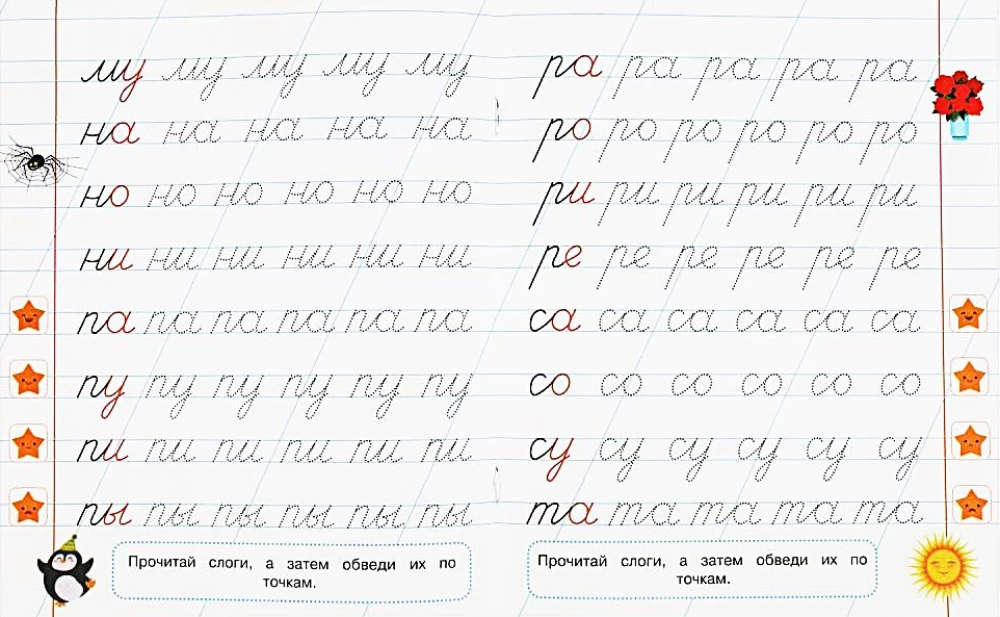 му му му му му
на на на на на
но но но но но но
ни ни ни ни ни ни
па па па па па па
пу пу пу пу пу пу
пи пи пи пи пи пи
пы пы пы пы пы пы
Прочитай слоги, а затем обведи их по
точкам.
ра ра ра ра ра
ро ро ро ро ро ро
ри ри ри ри ри ри
ре ре ре ре ре ре
са са са са са са
со со со со со со
су су су су су су
та та та та та
Прочитай слоги, а затем обведи их по
точкам.